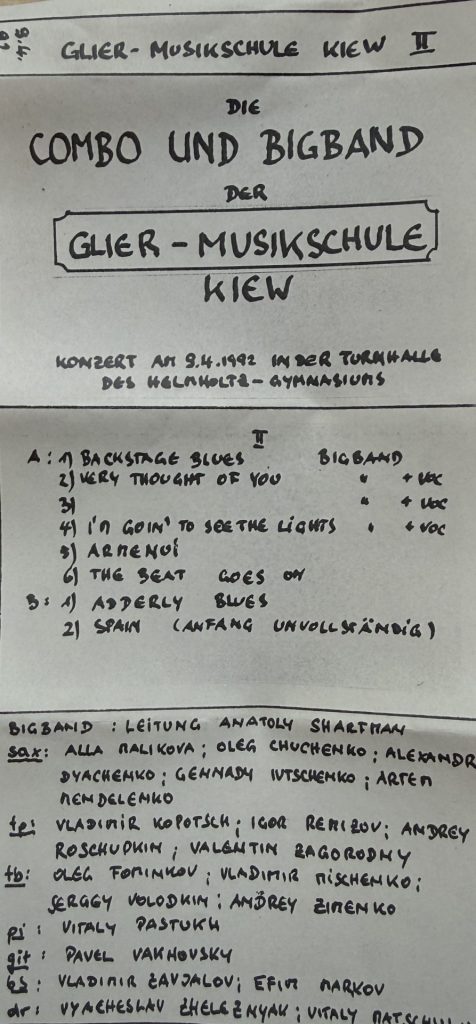 9.4.
GLIER-MUSIKSCHULE KIEW II
DIE
COMBO UND BIGBAND
DER
GLIER-MUSIKSCHULE
KIEW
KONZERT AM 9.4.1992 IN DER TURNHALLE
DES HELMHOLTZ-GYMNASIUMS
II
A: 1) BACKSTAGE BLUES BIGBAND
2) VERY THOUGHT OF YOU " + VOC
3) " + VOC
4) I'M GOIN' TO SEE THE LIGHTS " + VOC
5) ARMENUÍ
6) THE BEAT GOES ON
B: 1) ADDERLY BLUES
2) SPAIN (ANFANG UNVOLLSTÄNDIG)
BIGBAND : LEITUNG ANATOLY SHARTMAN
sax: ALLA MALIKOVA; OLEG CHUCHENKO; ALEXANDR
DYACHEMKO; GENNADY IUTSCHENKO; ARTEM
MENDELEMKO
tp: VLADIMIR KOPOTSCH; IGOR REMIZOV; ANDREY
ROSCHUPKIN; VALENTIN ZAGORODNY
tb: OLEG FOMINKOV; VLADIMIR MISCHENKO;
SERGGY VOLODKIN; ANDREY ZIMENKO
pi: VITALY PASTUKH
git: PAVEL VAKHOVSKY
bs: VLADIMIR ZAVJALOV; EFIM MARKOV
dr: VYACHESLAV ZHELEZNYAK; VITALY